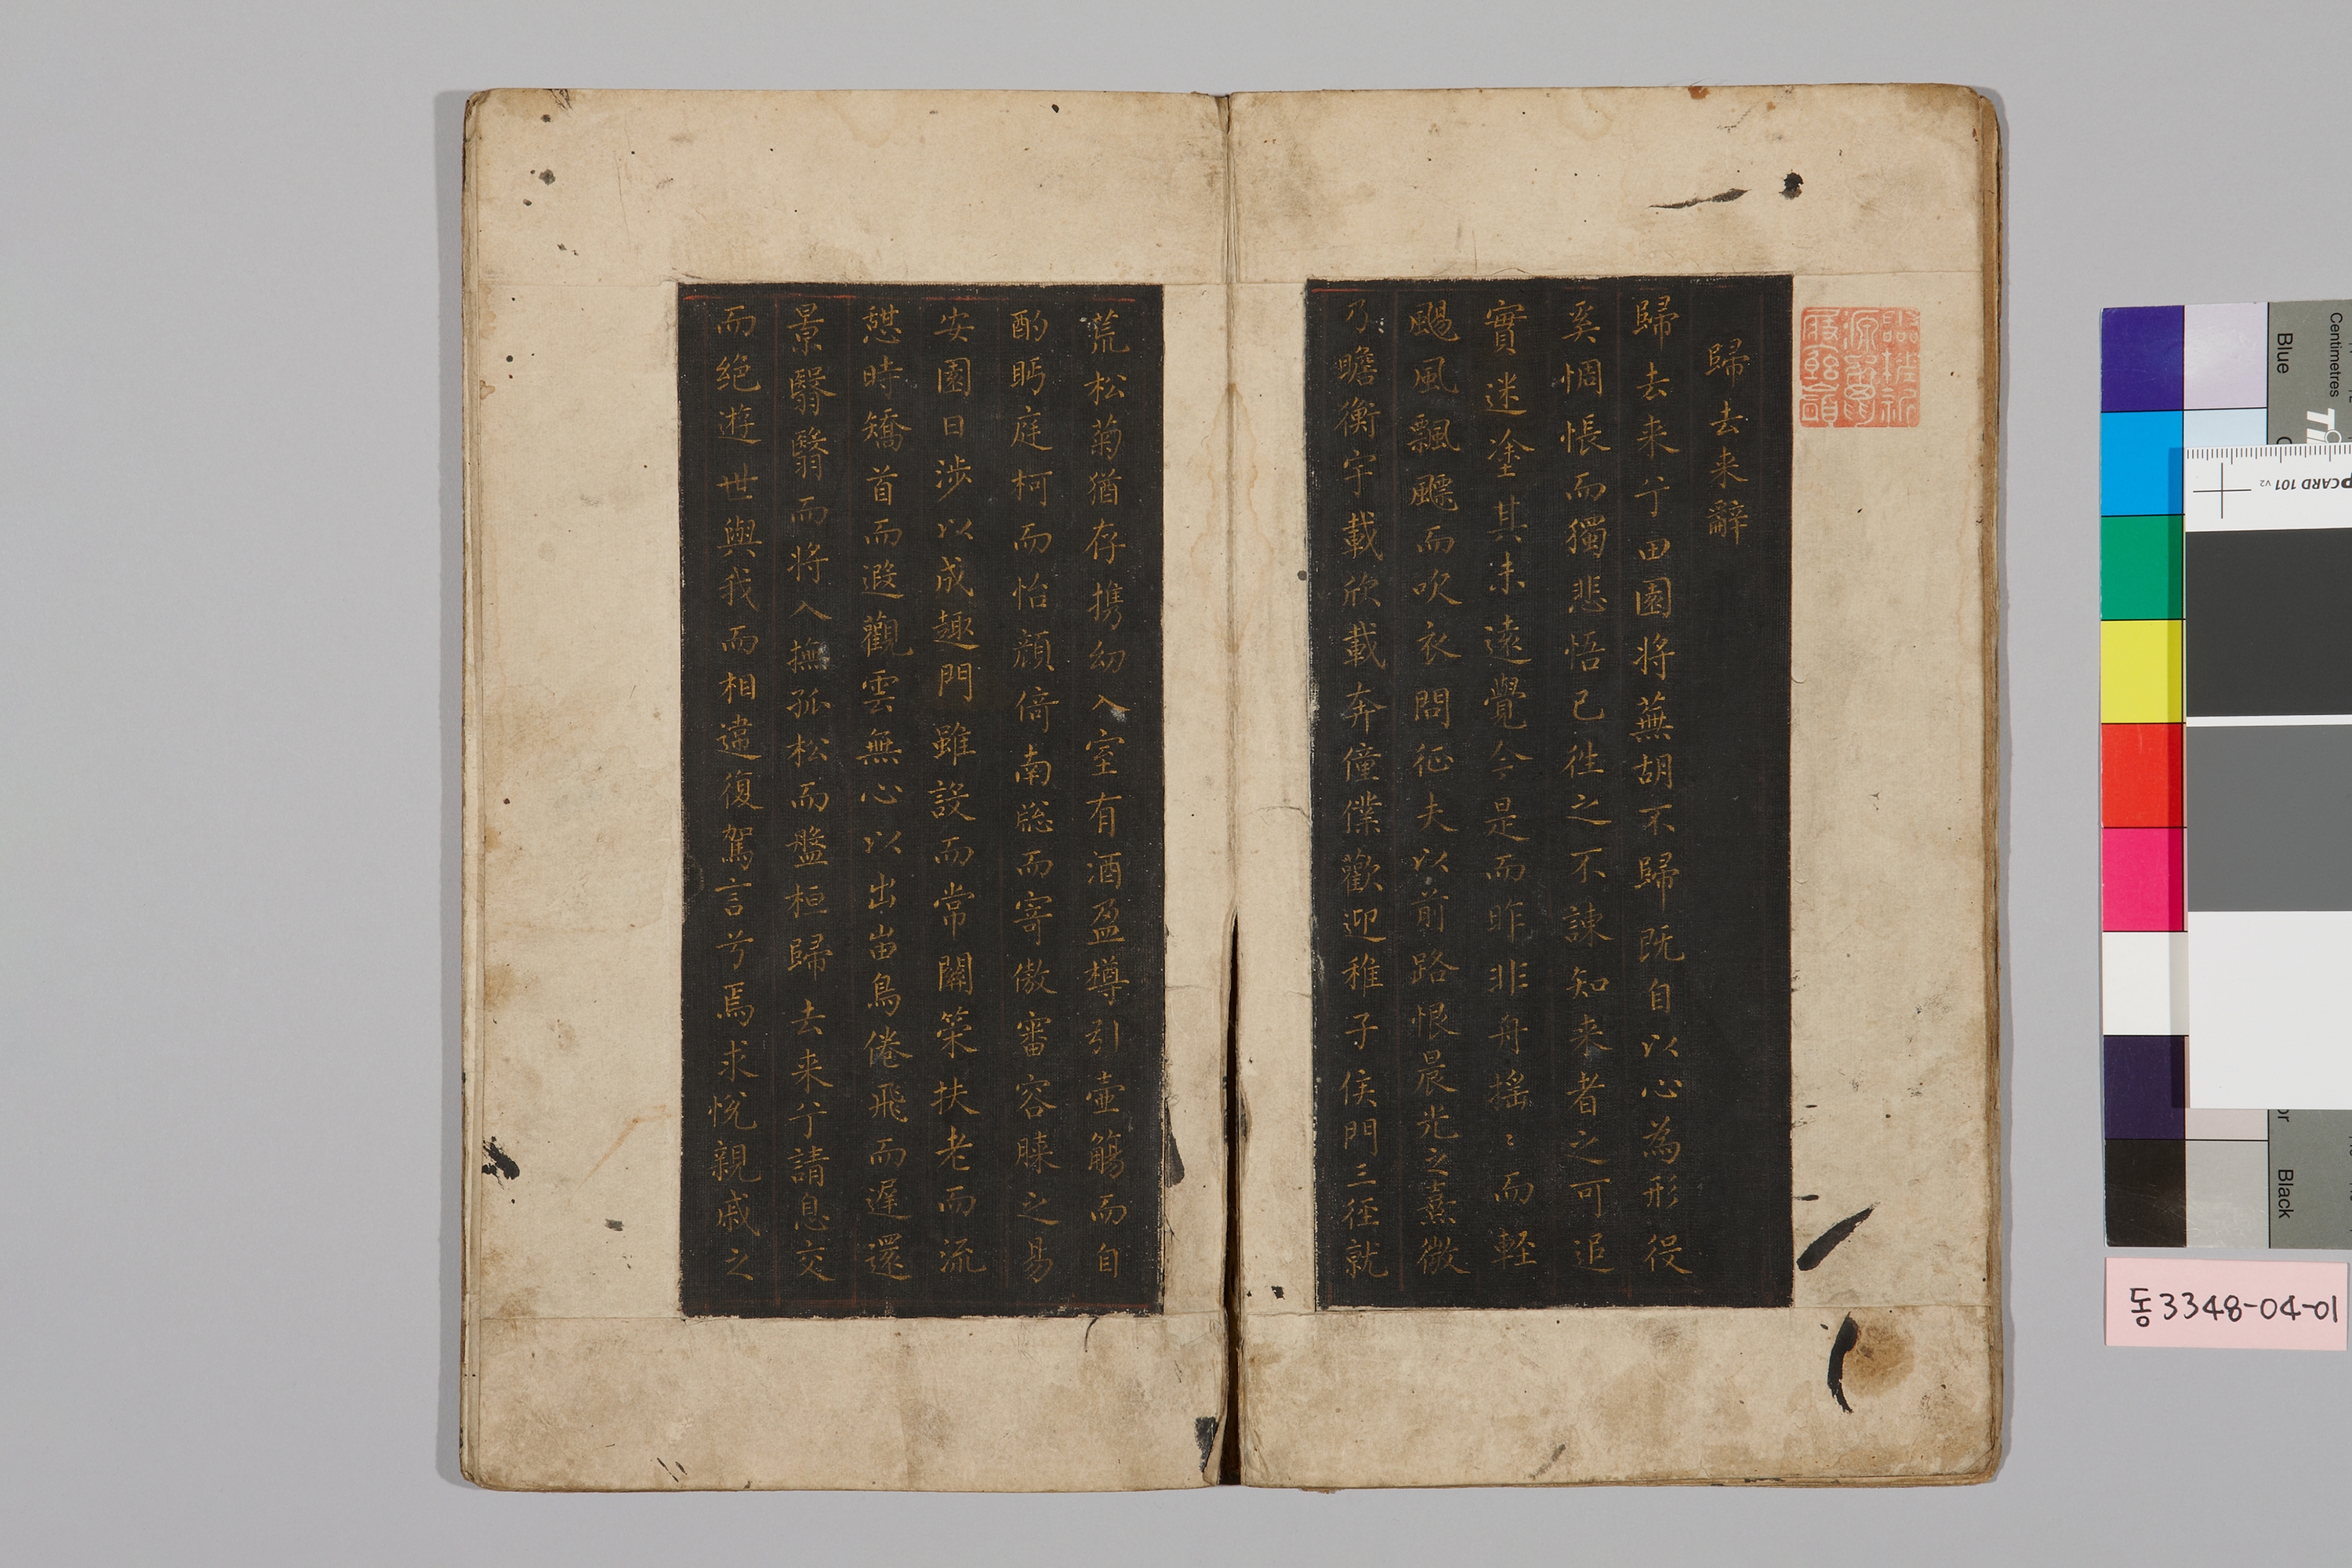 歸去来辭
歸去来兮田園将蕪胡不歸既自以心為形役
奚惆悵而獨悲悟已徃之不諫知来者之可追
實迷塗其未遠覺今是而昨非舟搖〻而軽
颺風飄飃而吹衣問征夫以前路恨晨光之熹微
乃瞻衡宇載欣載奔僮僕歡迎稚子候門三径就
荒松菊猶存携幼入室有酒盈樽引壺觴而自
酌眄庭柯而怡顔倚南牕而寄傲審容膝之易
安園日涉以成趣門雖設而常關策扶老而流
憇時矯首而遐觀雲無心以出峀鳥倦飛而遲還
景翳翳而将入撫孤松而盤桓歸去来兮請息交
而絶遊世與我而相違復駕言兮焉求悅親戚之
Centimetres
Blue
CARD 101 v2
Black
동3348-04-01